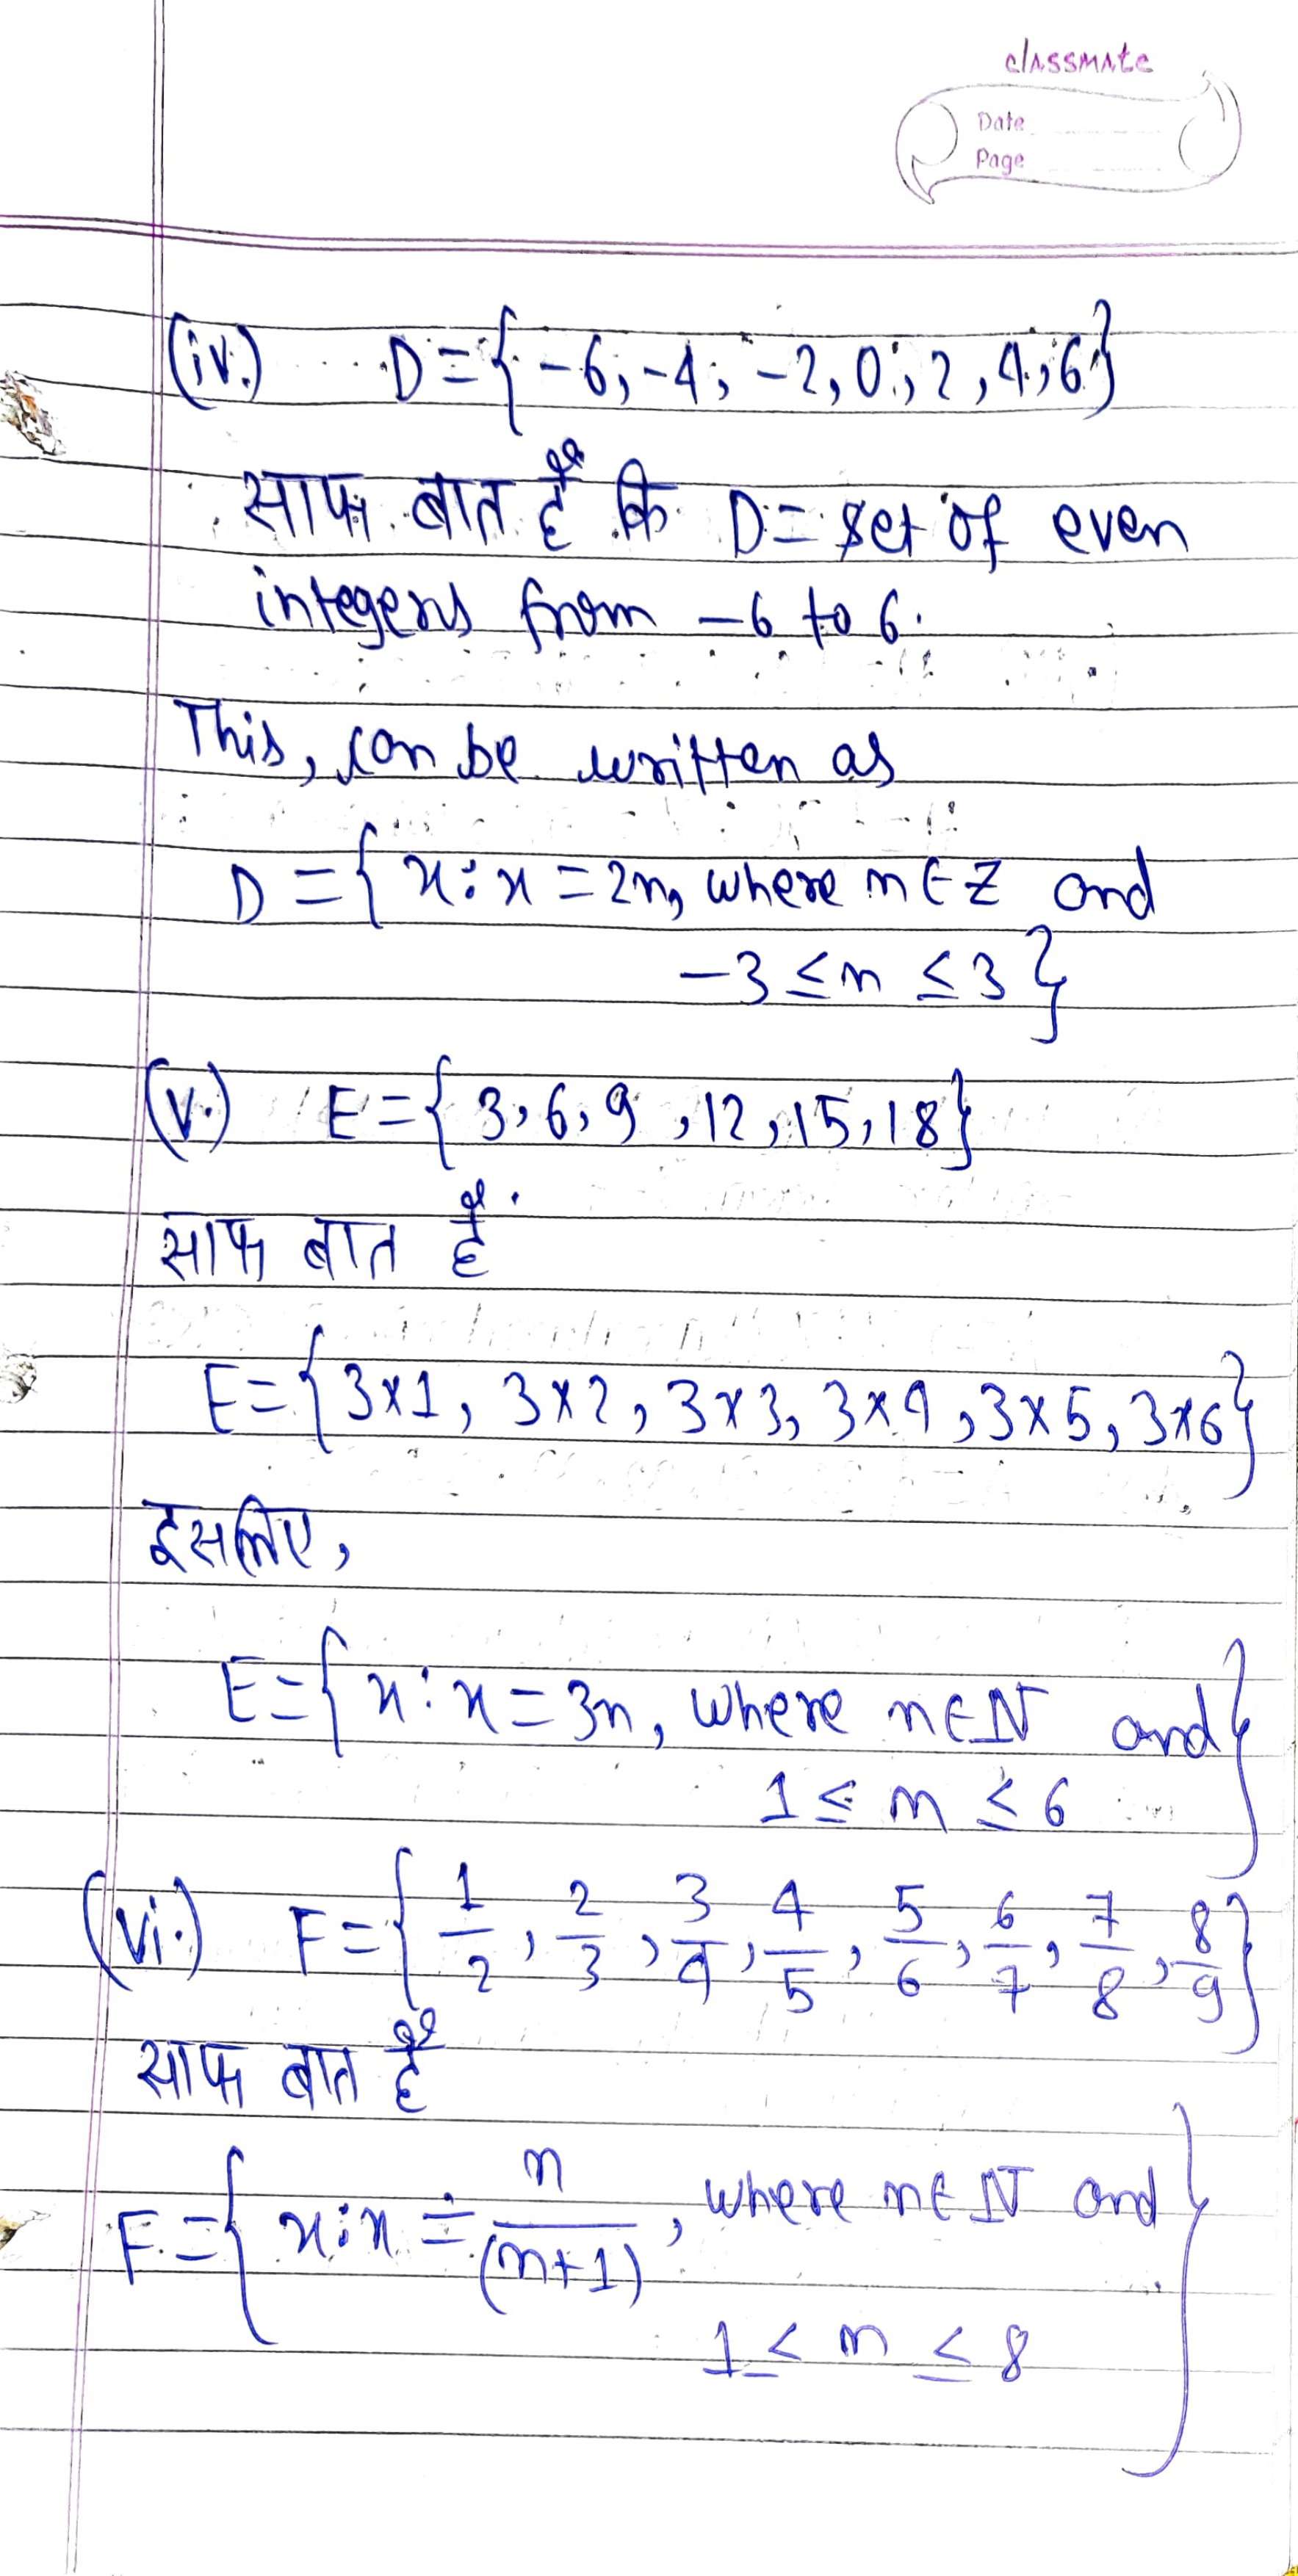 classmate
Date
Page
(iv.) D = { -6, -4, -2, 0, 2, 4, 6 }
साफ बात है कि D = set of even
integers from -6 to 6.
This, can be written as
D = { x : x = 2n, where n ∈ Z and
-3 ≤ n ≤ 3 }
(v.) E = { 3, 6, 9, 12, 15, 18 }
साफ बात है
E = { 3×1, 3×2, 3×3, 3×4, 3×5, 3×6 }
इसलिए,
E = { x : x = 3n, where n ∈ N and
1 ≤ n ≤ 6 }
(vi.) F = { 1/2, 2/3, 3/4, 4/5, 5/6, 6/7, 7/8, 8/9 }
साफ बात है
F = { x : x = n/(n+1), where n ∈ N and
1 ≤ n ≤ 8 }